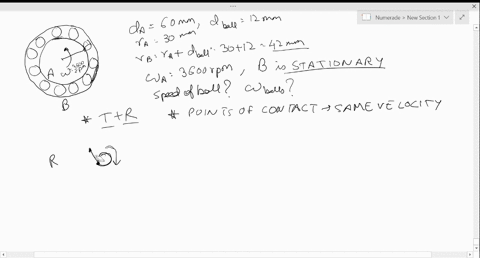 Numerade > New Section 1
d_A = 60mm, d_ball = 12mm
r_A = 30mm
r_B = r_A + d_ball = 30+12 = 42mm
ω_A = 3600rpm, B is STATIONARY
speed of ball? ω_balls?
A ω 3600 rpm
B
* T+R * POINTS OF CONTACT → SAME VELOCITY
R